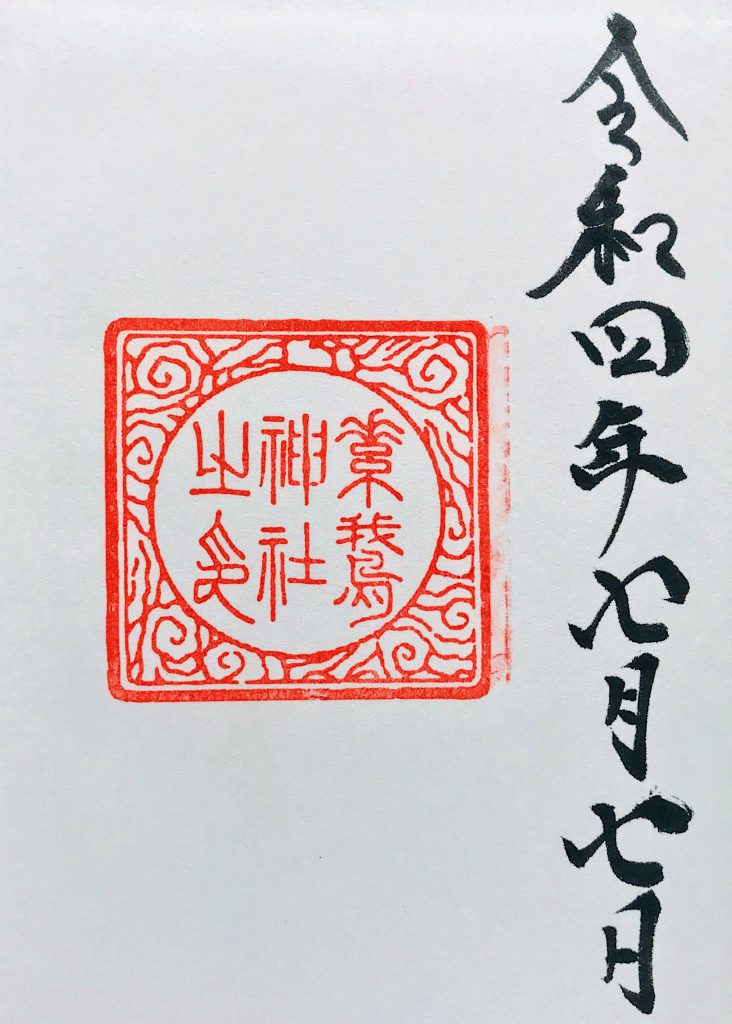 令和四年七月七日
素鵞
神社
之印